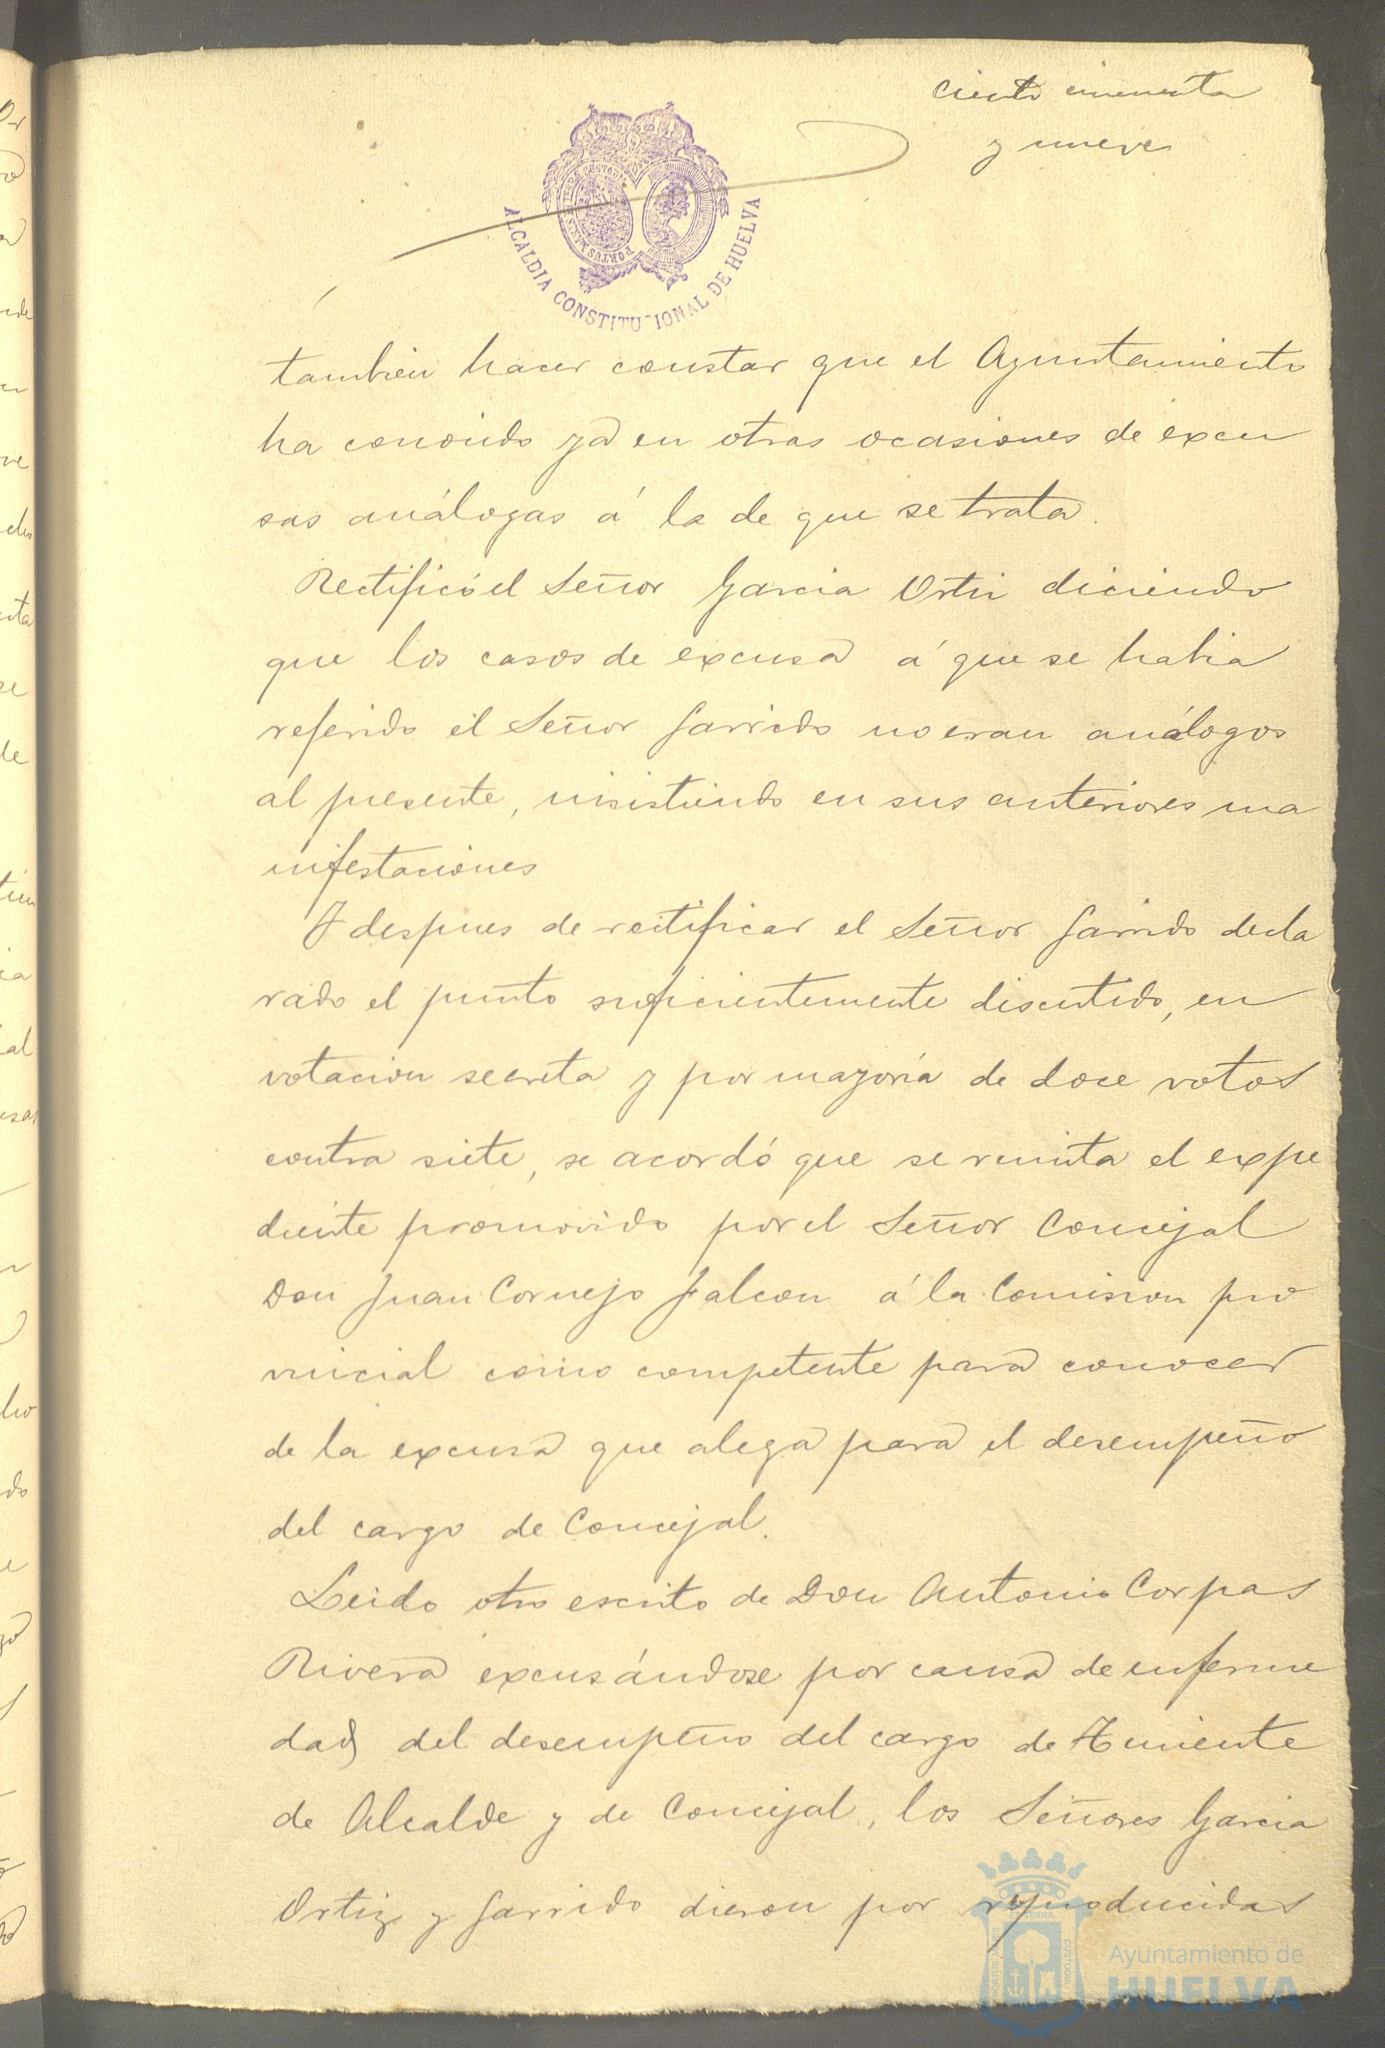 ciento cincuenta
y nueve
ALCALDIA CONSTITUCIONAL DE HUELVA
tambien hacer constar que el Ayuntamiento
ha conocido ya en otras ocasiones de excu
sas análogas á la de que se trata.
Rectificó el Señor Garcia Ortiz diciendo
que los casos de excusa á que se habia
referido el Señor Garrido no eran análogos
al presente, insistiendo en sus anteriores ma
nifestaciones
Y despues de rectificar el Señor Garrido decla
rado el punto suficientemente discutido, en
votacion secreta y por mayoría de doce votos
contra siete, se acordó que se remita el expe
diente promovido por el Señor Concejal
Don Juan Cornejo Falcon á la Comision pro
vincial como competente para conocer
de la excusa que alega para el desempeño
del cargo de Concejal.
Leido otro escrito de Don Antonio Corpas
Rivera excusándose por causa de enferme
dad del desempeño del cargo de Teniente
de Alcalde y de Concejal, los Señores Garcia
Ortiz y Garrido dieron por reproducidas
Ayuntamiento de
HUELVA